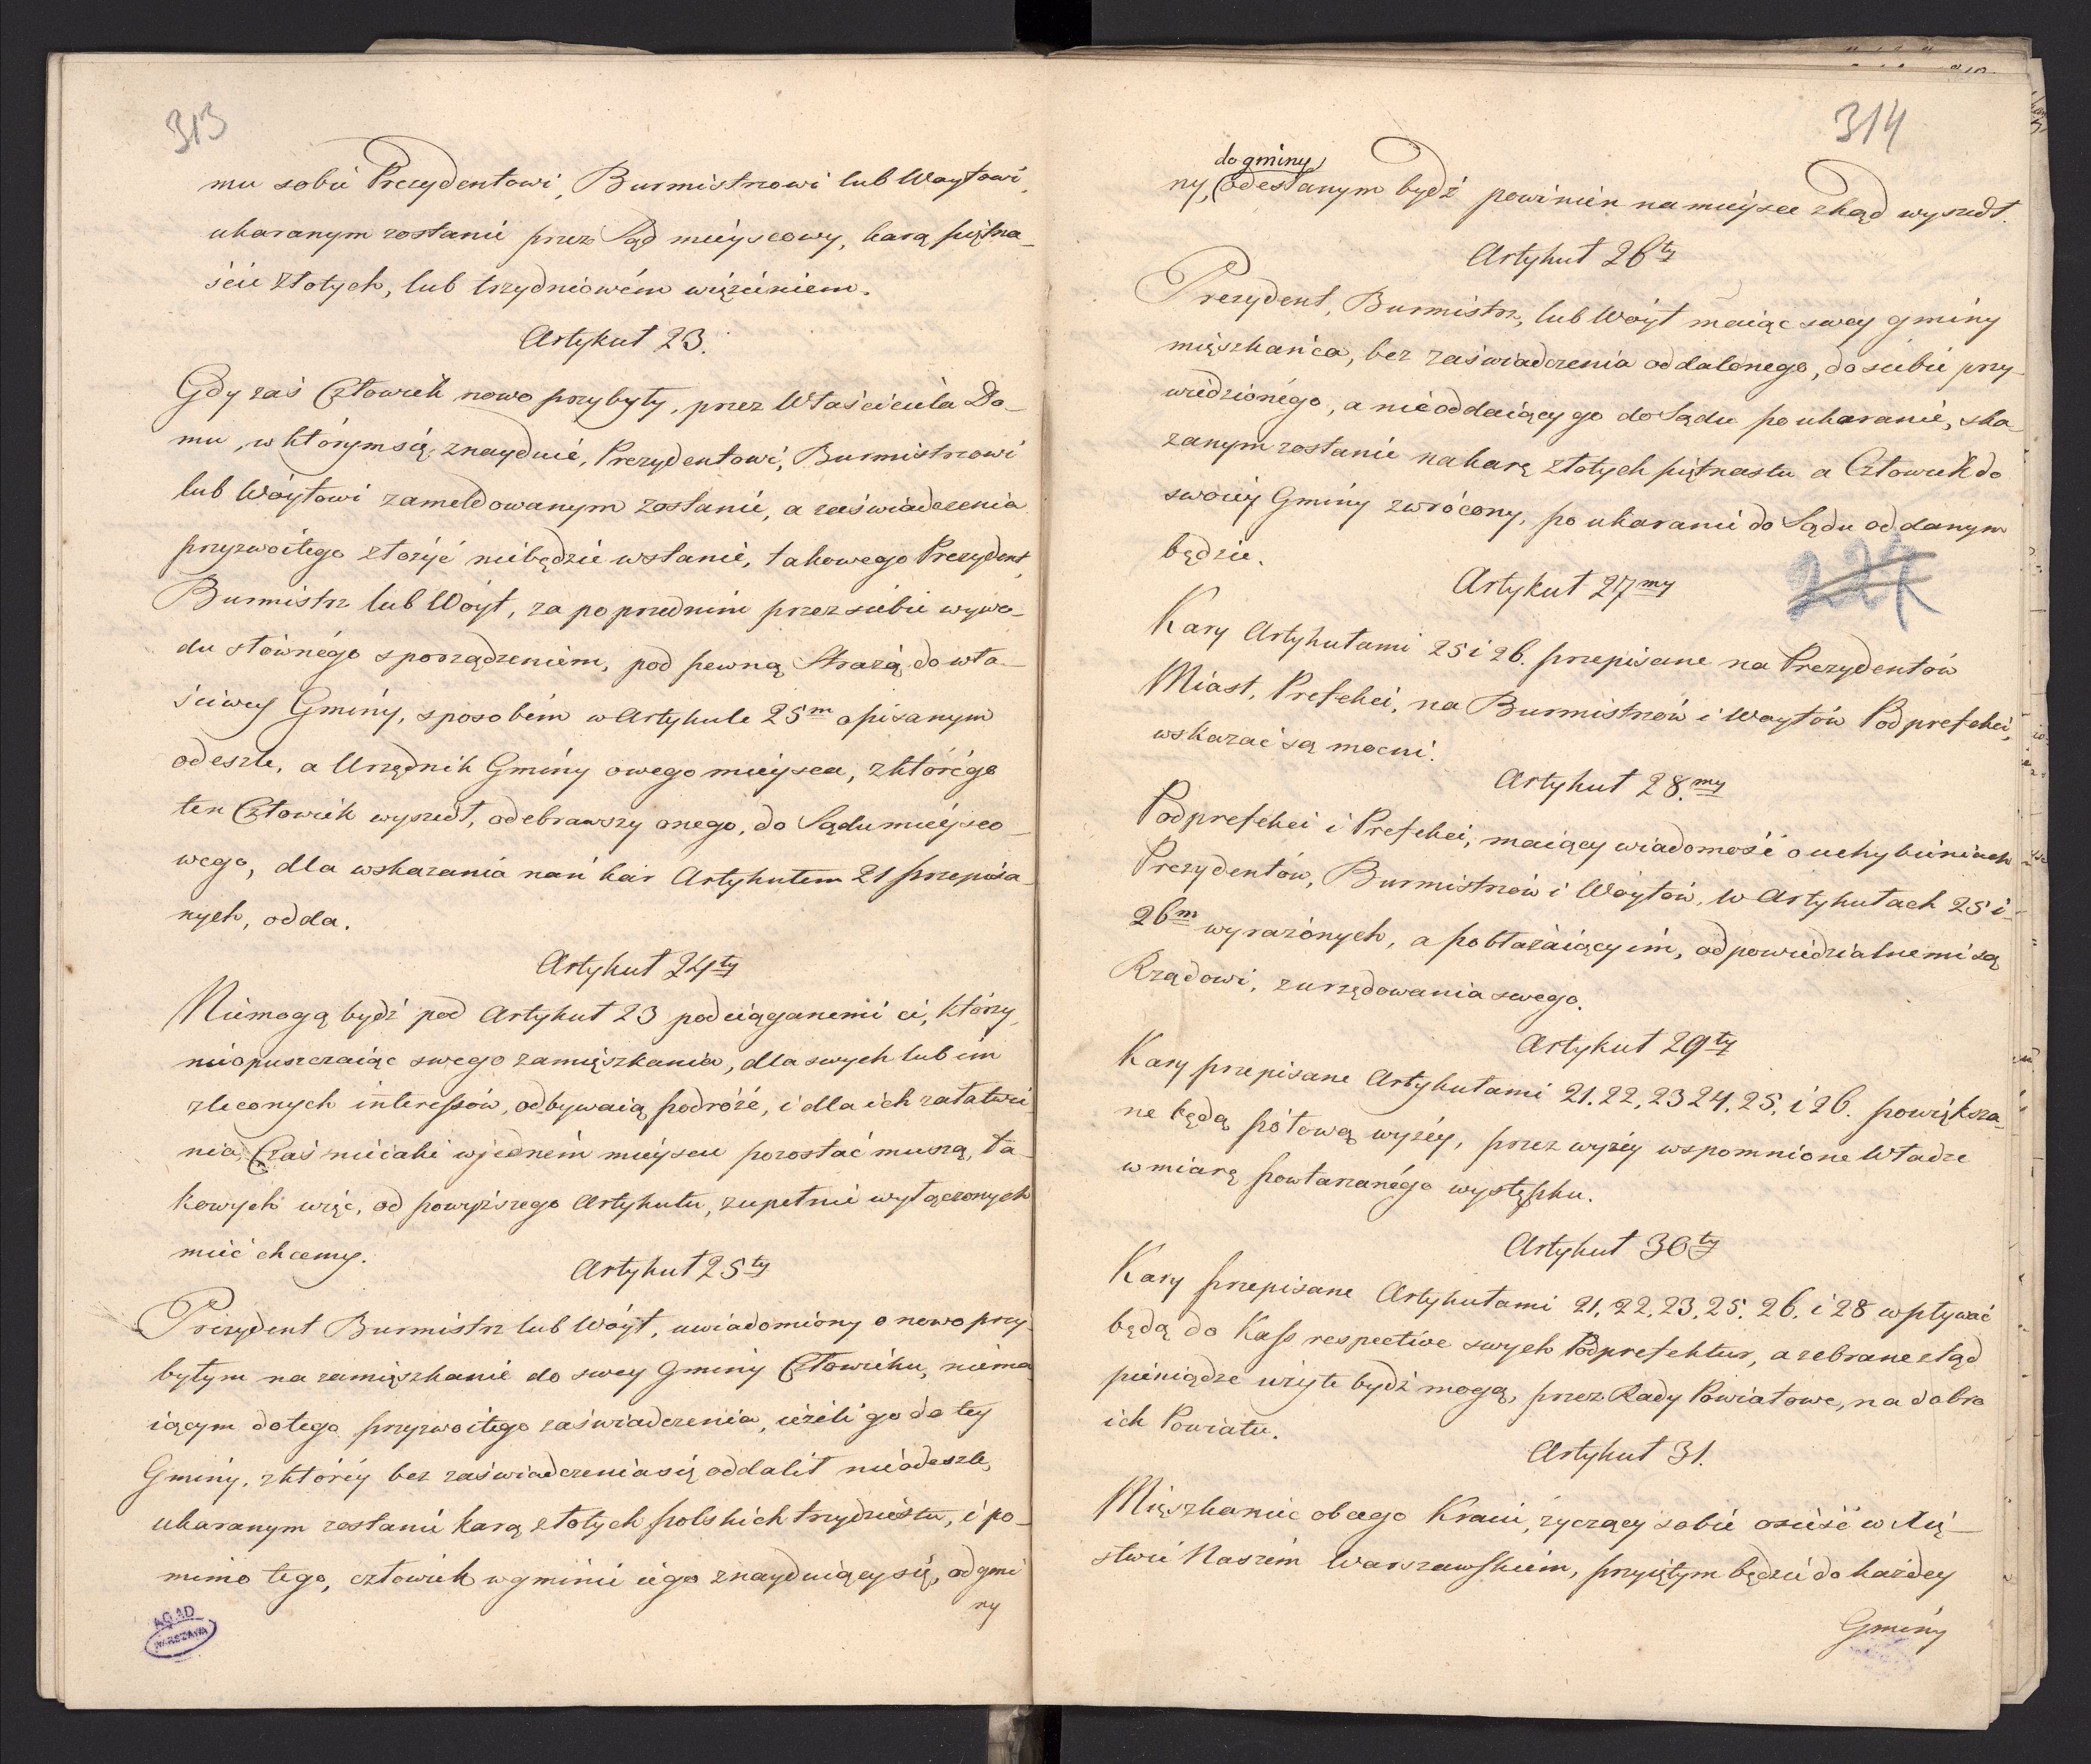 313
mu sobie Prezydentowi, Burmistrzowi lub Woytowi,
ukaranym zostanie przez Sąd mieyscowy, karą piętna_
ście złotych, lub trzydniowém więzieniem.
Artykuł 23.
Gdy zaś Człowiek nowo przybyły, przez Właściciela Do_
mu, w którym się znayduie, Prezydentowi, Burmistrzowi
lub Wóytowi zameldowanym zostanie, a zaświadczenia
przyzwoitego złożyć niebędzie wstanie, takowego Prezydent,
Burmistrz lub Wóyt, za poprzednim przez siebie wywo_
du słownégo sporządzeniem, pod pewną Strażą do wła_
ściwey Gminy, sposobem w Artykule 25m opisanym
odeszle, a Urzędnik Gminy owego mieysca, z którégo
ten Człowiek wyszedł, odebrawszy onego, do Sądu mieysco_
wego, dla wskazania nań kar Artykułem 21 przepisa_
nych, odda.
Artykuł 24ty
Niemogą bydź pod Artykuł 23 podciąganemi ci, którzy,
nieopuszczaiąc swego zamięszkania, dla swych lub im
zleconych interessów, odbywaią podróże, i dla ich załatwie
nia, Czas nieiaki w jedném mieyscu pozostać muszą, ta_
kowych więc, od powyższego Artykułu, zupełnie wyłączonych
mieć chcemy.
Artykuł 25ty
Prezydent Burmistrz lub Wóyt, uwiadomiony o nowo przy_
byłym na zamięszkanie do swey Gminy Człowieku, niema
iącym do tego przyzwoitego zaświadczenia, ieżeli go do tey
Gminy, z któréy bez zaświadczenia się oddalił nieodeszle,
ukaranym zostanie karą złotych polskich trzydziestu, i po_
mimo tego, człowiek w gminie iego znayduiący się, od gmi
ny
AGAD
WARSZAWA
314
do gminy
ny, odesłanym bydź powinien na mieysce zkąd wyszedł.
Artykuł 26ty
Prezydent, Burmistrz, lub Wóyt maiąc swey gminy
mięszkańca, bez zaświadczenia oddalonego, do siebie przy_
wiedzionégo, a nieoddaiący go do Sądu po ukaranie, ska_
zanym zostanie na karę złotych piętnastu a Człowiek do
swoiey Gminy zwrócony, po ukaranie do Sądu oddanym
będzie.
227
Artykuł 27my
Kary Artykułami 25 i 26. przepisane na Prezydentów
Miast, Prefekci, na Burmistrzów i Woytów Podprefekci,
wskazać są mocni.
Artykuł 28.my
Podprefekci i Prefekci, maiący wiadomość o uchybieniach
Prezydentów, Burmistrzów i Wóytów, w Artykułach 25 i_
26m wyrażonych, a pobłażaiący im, odpowiedzialnemi są
Rządowi, z urzędowania swego.
Artykuł 29ty
Kary przepisane Artykułami 21. 22, 23 24, 25, i 26. powiększa_
ne będą połową wyżéy, przez wyżéy wspomnione Władze
w miarę powtarzanégo występku.
Artykuł 30ty
Kary przepisane Artykułami 21. 22, 23, 25. 26. i 28 wpływać
będą do Kass respective swych Podprefektur, a zebrane ztąd
pieniądze użyte bydź mogą, przez Rady Powiatowe, na dobro
ich Powiatu.
Artykuł 31.
Mięszkaniec obcego Kraiu, życzący sobie osieść w Xię_
stwie Naszém Warszawskiém, przyiętym będzie do każdey
Gminy